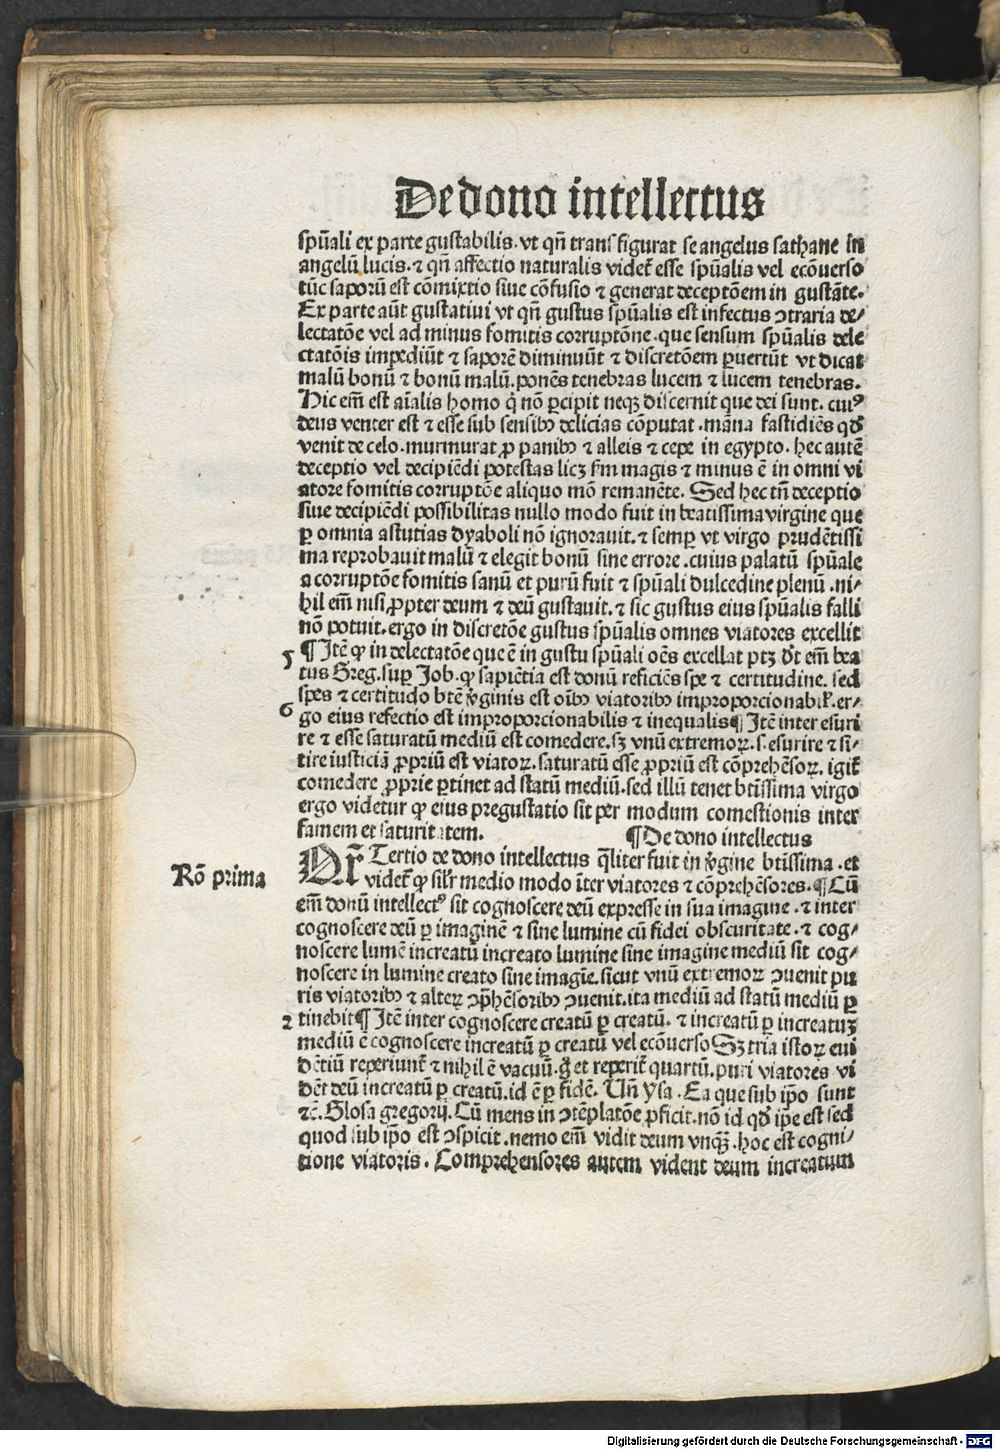 De dono intellectus
spũali ex parte gustabilis. vt qñ transfigurat se angelus sathane in
angelũ lucis. ⁊ qñ affectio naturalis videt̃ esse spũalis vel ecõuerso
tũc saporũ est cõmixtio siue cõfusio ⁊ generat deceptõem in gustãte.
Ex parte aũt gustatiui vt qñ gustus spũalis est infectus ↄtraria de/
lectatõe vel ad minus fomitis corruptõne. que sensum spũalis dele
ctatõis impediũt ⁊ saporẽ diminuũt ⁊ discretõem ꝑuertũt vt dicat
malũ bonũ ⁊ bonũ malũ. ponẽs tenebras lucem ⁊ lucem tenebras.
Hic em̃ est aĩalis homo q̇ nõ ꝑcipit neqꝫ discernit que dei sunt. cuiꝰ
deus venter est ⁊ esse sub sensibꝫ delicias cõputat. mãna fastidiẽs qđ
venit de celo. murmurat ꝓ panibꝫ ⁊ alleis ⁊ cepe in egypto. hec autẽ
deceptio vel decipiẽdi potestas licꝫ fm̃ magis ⁊ minus ẽ in omni vi
atore fomitis corruptõe aliquo mõ remanẽte. Sed hec tñ deceptio
siue decipiẽdi possibilitas nullo modo fuit in beatissima virgine que
ꝑ omnia astutias dyaboli nõ ignorauit. ⁊ semꝑ vt virgo prudẽtissi
ma reprobauit malũ ⁊ elegit bonũ sine errore. cuius palatũ spũale
a corruptõe fomitis sanũ et purũ fuit ⁊ spũali dulcedine plenũ. ni/
hil em̃ nisi ꝓpter deum ⁊ deũ gustauit. ⁊ sic gustus eius spũalis falli
nõ potuit. ergo in discretõe gustus spũalis omnes viatores excellit
5 ¶ Itẽ ꝙ in delectatõne que ẽ in gustu spũali oẽs excellat ptꝫ dt̃ em̃ bea
tus Greg. suꝑ Job. ꝙ sapiẽtia est donũ reficiẽs spe ⁊ certitudine. sed
spes ⁊ certitudo btẽ v̾ginis est oĩbꝫ viatoribꝫ improporcionabil̃. er/
6 go eius refectio est improporcionabilis ⁊ inequalis ¶ Itẽ inter esuri
re ⁊ esse saturatũ mediũ est comedere. sꝫ vnũ extremoꝝ. s. esurire ⁊ si/
tire iusticiã ꝓpriũ est viatoꝝ. saturatũ esse ꝓpriũ est cõprehẽsoꝝ. igit̃
comedere ꝓprie ꝑtinet ad statũ mediũ. sed illũ tenet btĩssima virgo
ergo videtur ꝙ eius pregustatio sit per modum comestionis inter
famem et saturitatem. ¶ De dono intellectus
Rõ prima
Tertio de dono intellectus q̃liter fuit in v̾gine btĩssima. et
videt̃ ꝙ sil̃r medio modo ĩter viatores ⁊ cõprehẽsores. ¶ Cũ
em̃ donũ intellectꝰ sit cognoscere deũ expresse in sua imagine. ⁊ inter
cognoscere deũ ꝑ imaginẽ ⁊ sine lumine cũ fidei obscuritate. ⁊ cog/
noscere lumẽ increatũ increato lumine sine imagine mediũ sit cog/
noscere in lumine creato sine imagĩe. sicut vnũ extremoꝝ ↄuenit pu
ris viatoribꝫ ⁊ alteꝝ ↄp̃hẽsoribꝫ ↄuenit. ita mediũ ad statũ mediũ ꝑ
2 tinebit ¶ Itẽ inter cognoscere creatũ ꝑ creatũ. ⁊ increatũ ꝑ increatuꝫ
mediũ ẽ cognoscere increatũ ꝑ creatũ vel ecõuerso Sꝫ tria istoꝝ eui
dẽtiũ reperiunt̃ ⁊ nihil ẽ vacuũ. g̊ et reperit̃ quartũ. puri viatores vi
dẽt deũ increatũ ꝑ creatũ. id ẽ ꝑ fidẽ. Uñ ysa. Ea que sub ip̃o sunt
⁊c̃. Glosa gregorij. Cũ mens in ↄtẽplatõe ꝓficit. nõ id qđ ip̃e est sed
quod sub ip̃o est ↄspicit. nemo em̃ vidit deum vnqꝫ. hoc est cogni/
tione viatoris. Comprehensores autem vident deum increatum
Digitalisierung gefördert durch die Deutsche Forschungsgemeinschaft - DFG